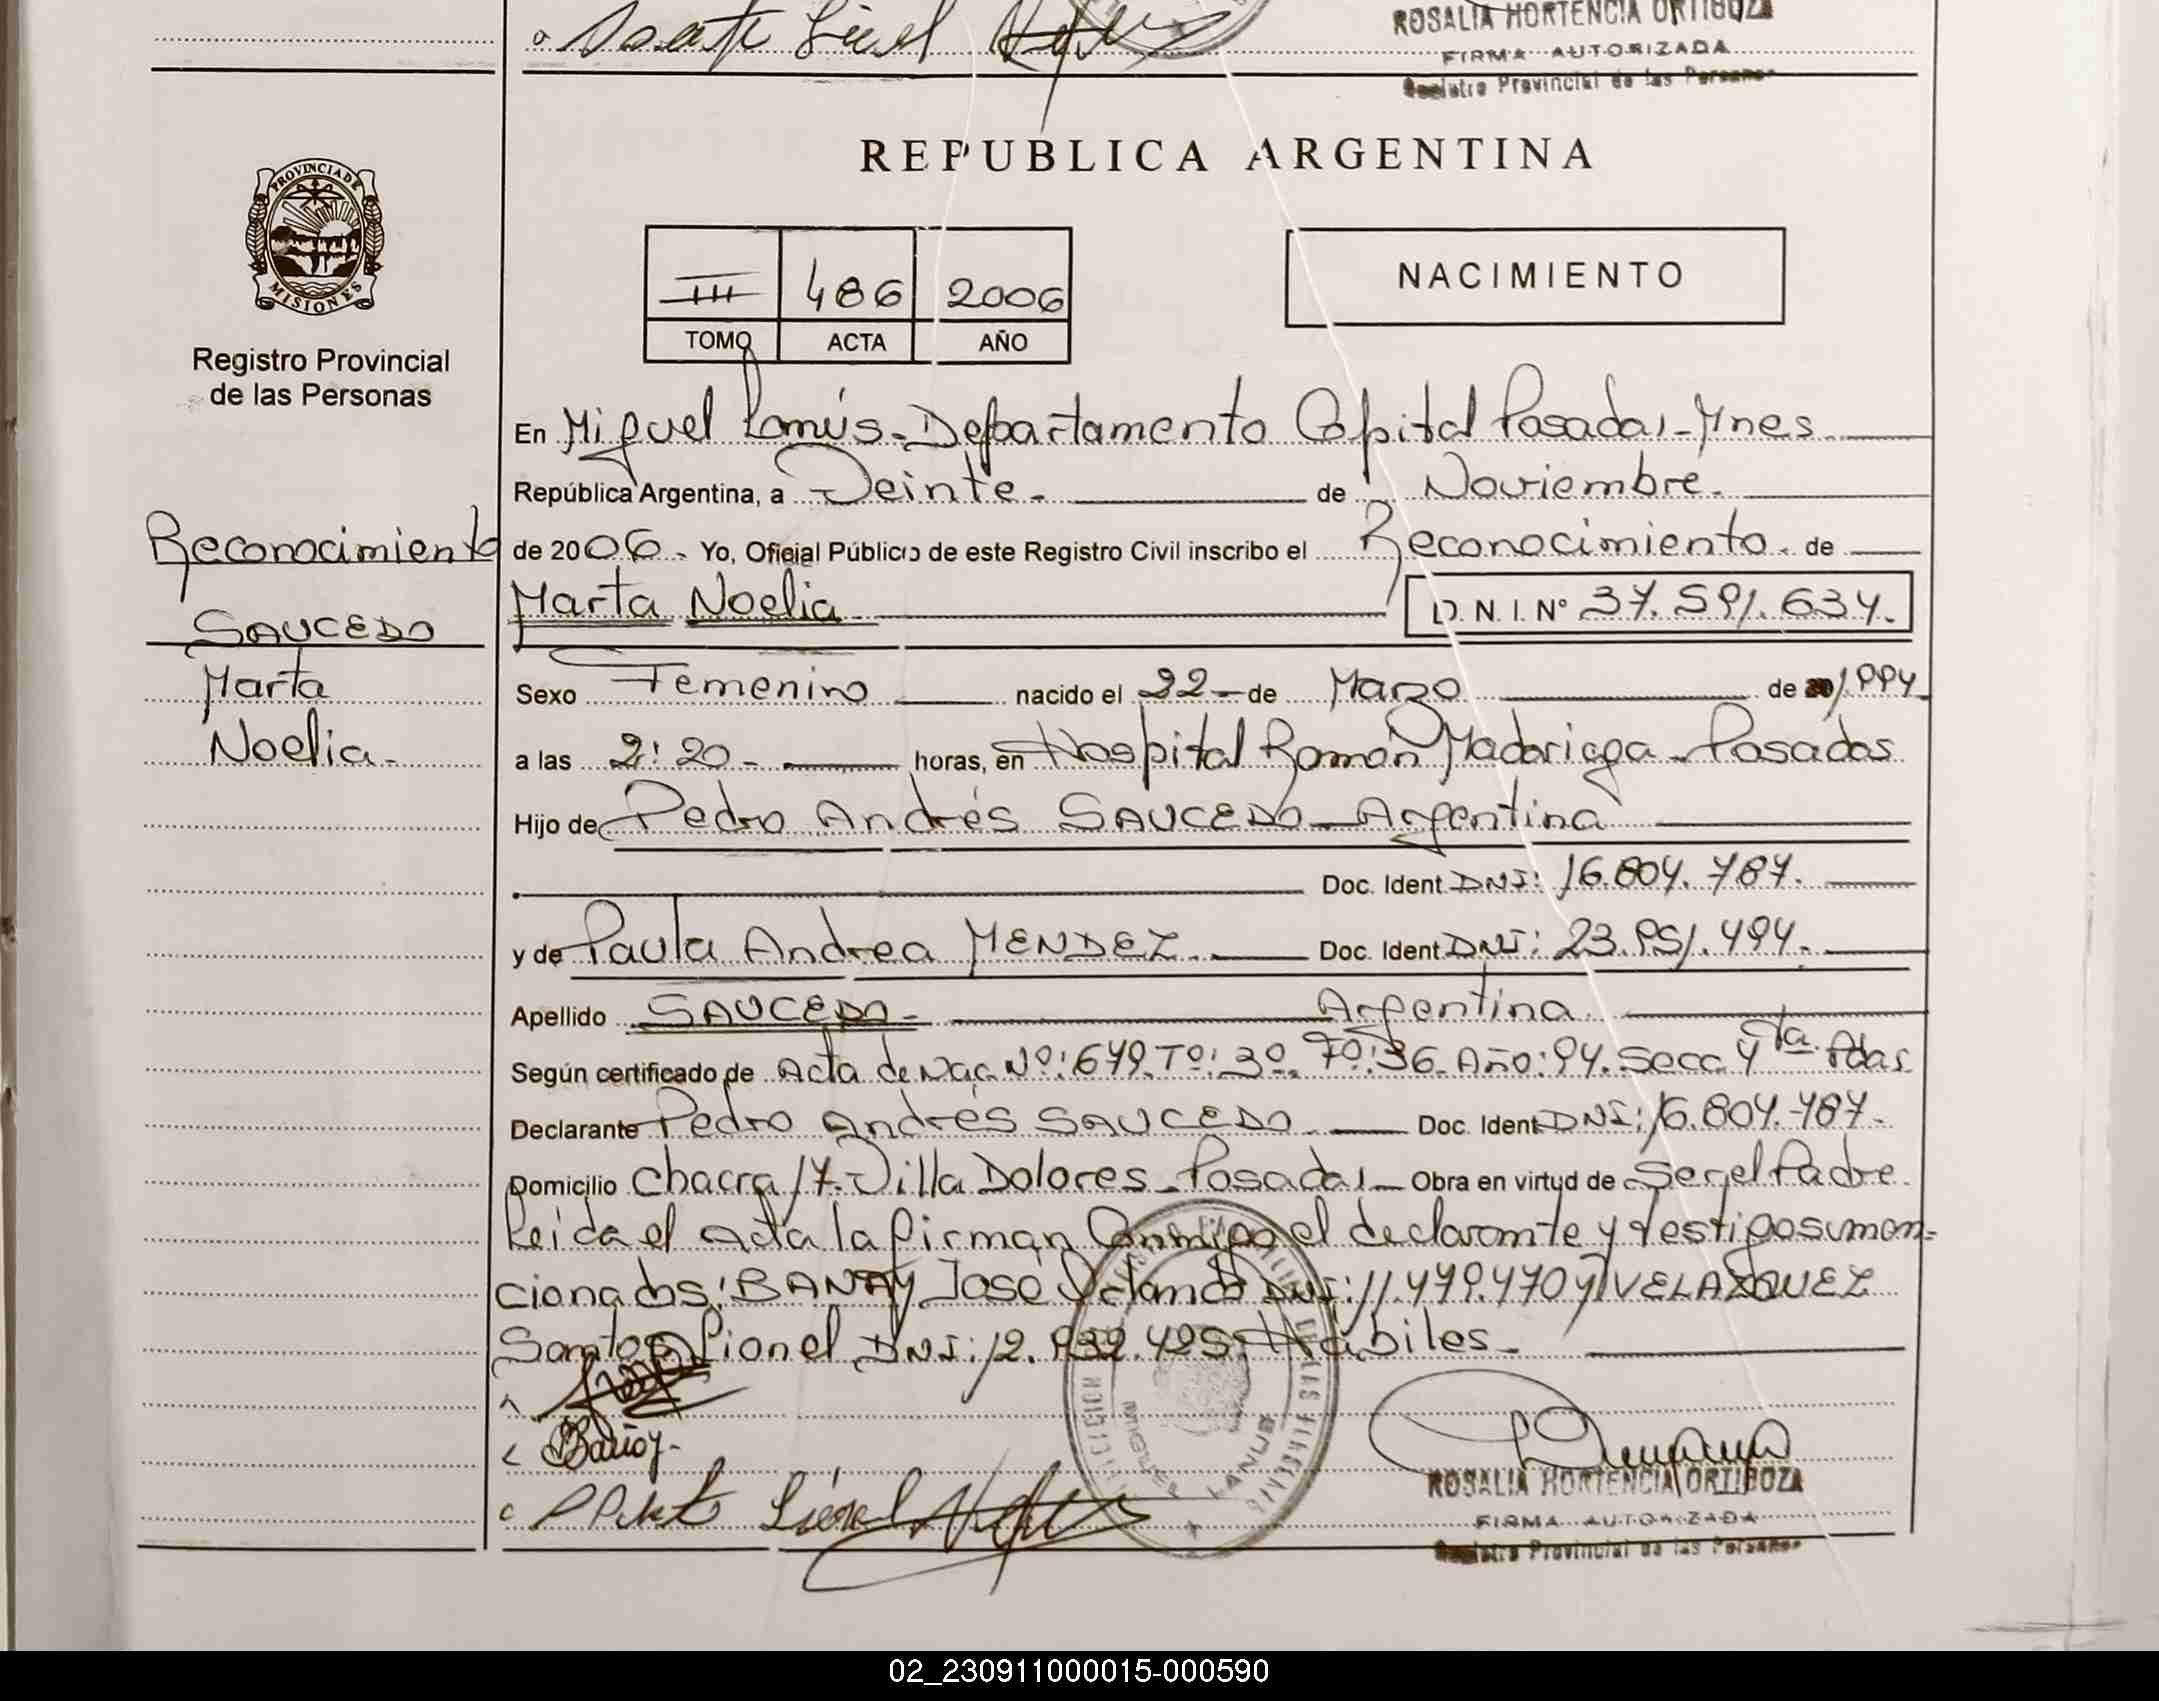 ROSALIA HORTENCIA ORTIGOZA
FIRMA AUTORIZADA
Registro Provincial de las Personas
REPUBLICA ARGENTINA
PROVINCIA DE MISIONES
Registro Provincial
de las Personas
III 486 2006
TOMO ACTA AÑO
NACIMIENTO
Reconocimiento
SAUCEDO
Marta
Noelia.-
En Miguel Lanús-Departamento Capital Posadas-Mnes
República Argentina, a Veinte.- de Noviembre.
de 2006.- Yo, Oficial Público de este Registro Civil inscribo el Reconocimiento. de
Marta Noelia D. N. I. N° 37.591.634.
Sexo Femenino nacido el 22- de Marzo de 1994
a las 2:20- horas, en Hospital Ramón Madariaga-Posadas
Hijo de Pedro Andrés SAUCEDO-Argentina
Doc. Ident. DNI: 16.804.787.
y de Paula Andrea MENDEZ. Doc. Ident. DNI: 23.951.494.
Apellido SAUCEDO- Argentina
Según certificado de Acta de Nac. Nº:679.Tº:3º.Fº:36.Año:94.Secc.4ta.Pdas.
Declarante Pedro Andrés SAUCEDO Doc. Ident. DNI:16.804.787.
Domicilio Chacra 17-Villa Dolores-Posadas- Obra en virtud de Ser el Padre
Leida el Acta la firman Conmigo el declarante y testigos men=
cionados: José Orlando DNI:11.479.470 y VELAZQUEZ
Santos Lionel DNI:12.932.425 Hábiles-
MIGUEL LANUS
ROSALIA HORTENCIA ORTIGOZA
FIRMA AUTORIZADA
Registro Provincial de las Personas
02_230911000015-000590